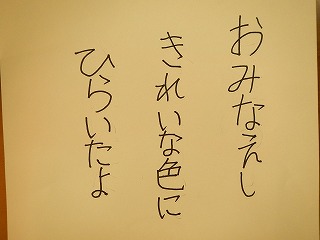 おみなえし
きれいな色に
ひらいたよ